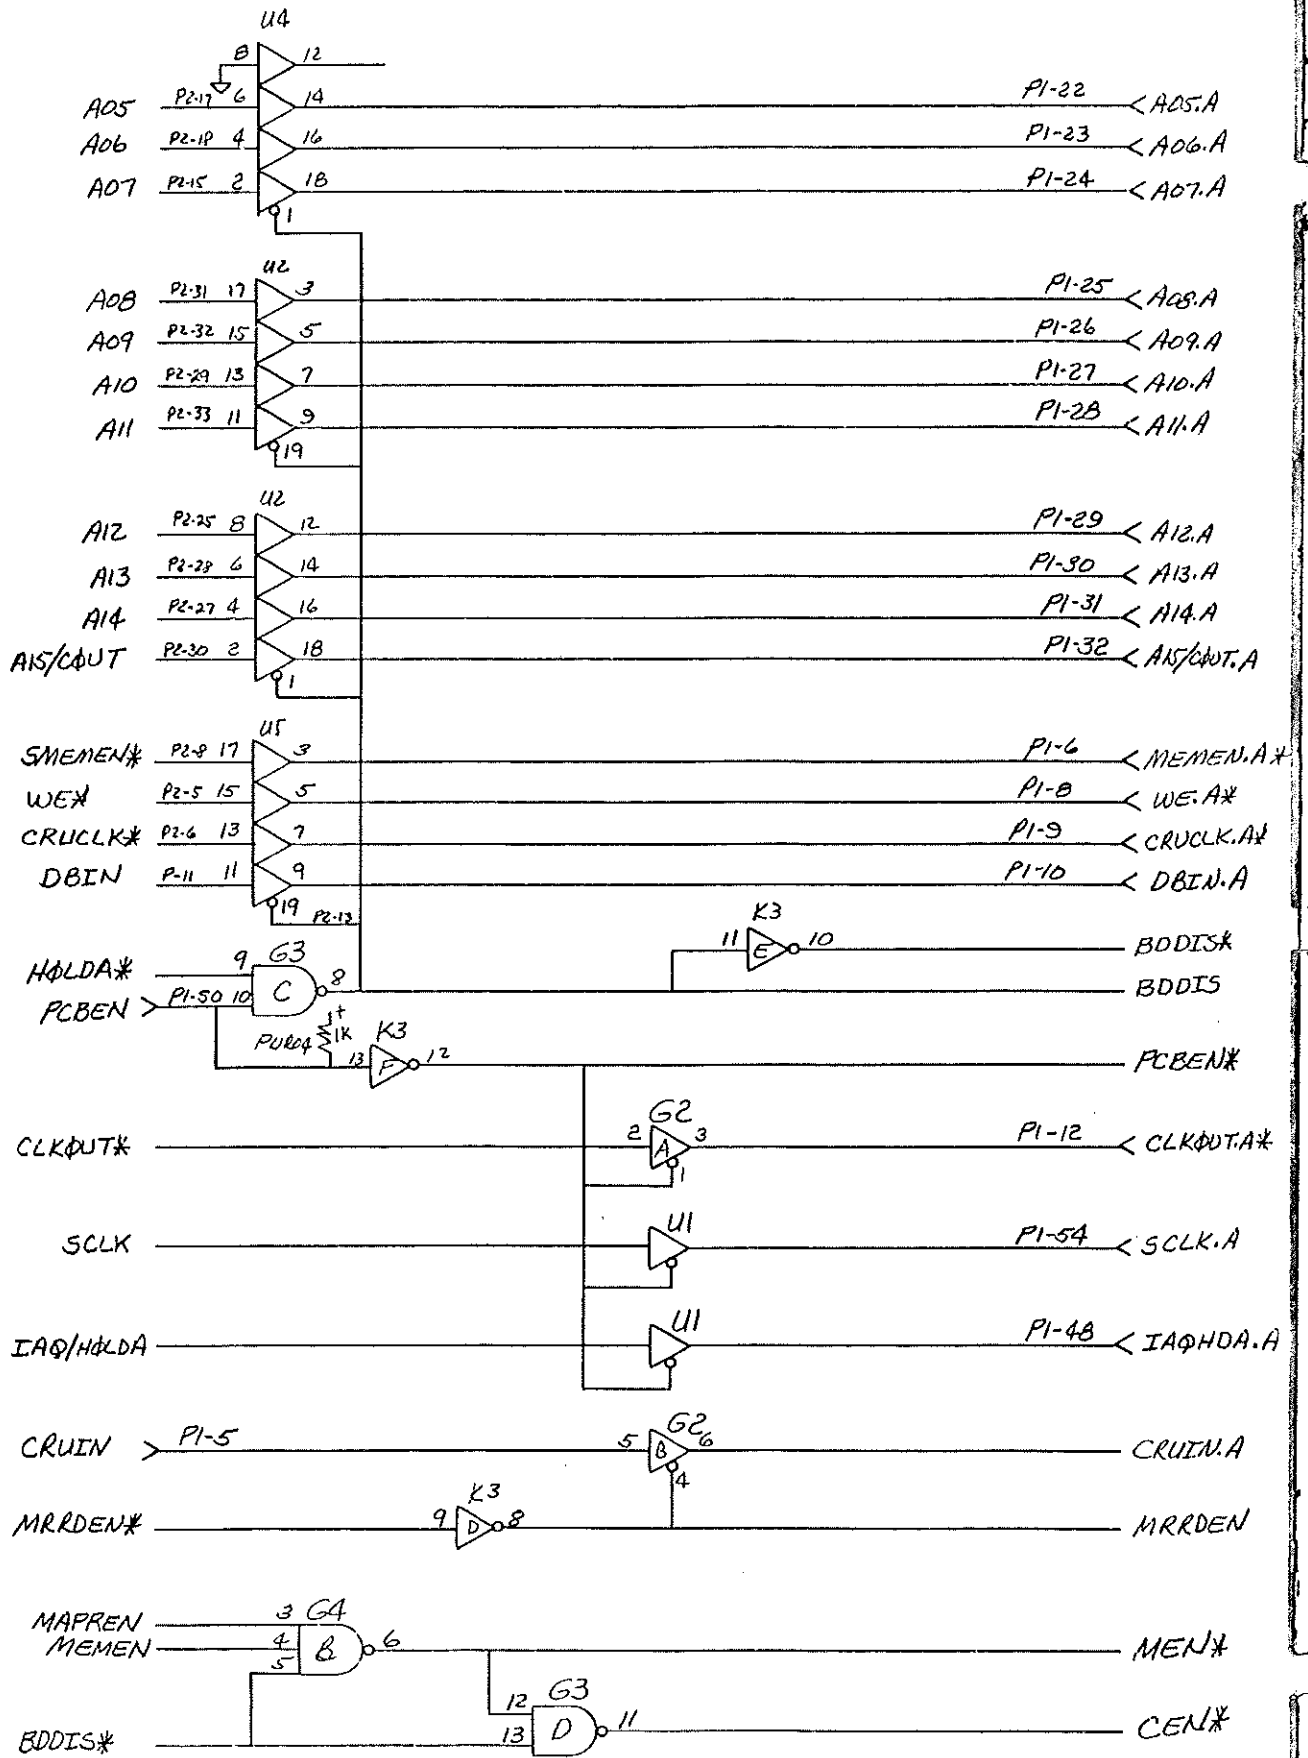 U4
8 12
A05 P2-17 6 14 P1-22 A05.A
A06 P2-18 4 16 P1-23 A06.A
A07 P2-15 2 18 P1-24 A07.A
1
U2
A08 P2-31 17 3 P1-25 A08.A
A09 P2-32 15 5 P1-26 A09.A
A10 P2-29 13 7 P1-27 A10.A
A11 P2-33 11 9 P1-28 A11.A
19
U2
A12 P2-25 8 12 P1-29 A12.A
A13 P2-28 6 14 P1-30 A13.A
A14 P2-27 4 16 P1-31 A14.A
A15/CØUT P2-30 2 18 P1-32 A15/CØUT.A
1
U5
SMEMEN* P2-8 17 3 P1-6 MEMEN.A*
WE* P2-5 15 5 P1-8 WE.A*
CRUCLK* P2-6 13 7 P1-9 CRUCLK.A*
DBIN P-11 11 9 P1-10 DBIN.A
19 P2-13
K3
11 E 10 BDDIS*
HØLDA* 9 G3
C 8 BDDIS
PCBEN P1-50 10
PUR04 + 1K
K3
13 F 12 PCBEN*
G2
CLKØUT* 2 A 3 P1-12 CLKØUT.A*
1
U1
SCLK P1-54 SCLK.A
U1
IAQ/HØLDA P1-48 IAQHDA.A
G2
CRUIN P1-5 5 B 6 CRUIN.A
4
K3
MRRDEN* 9 D 8 MRRDEN
G4
MAPREN 3
MEMEN 4 B 6 MEN*
5
G3
12
BDDIS* 13 D 11 CEN*